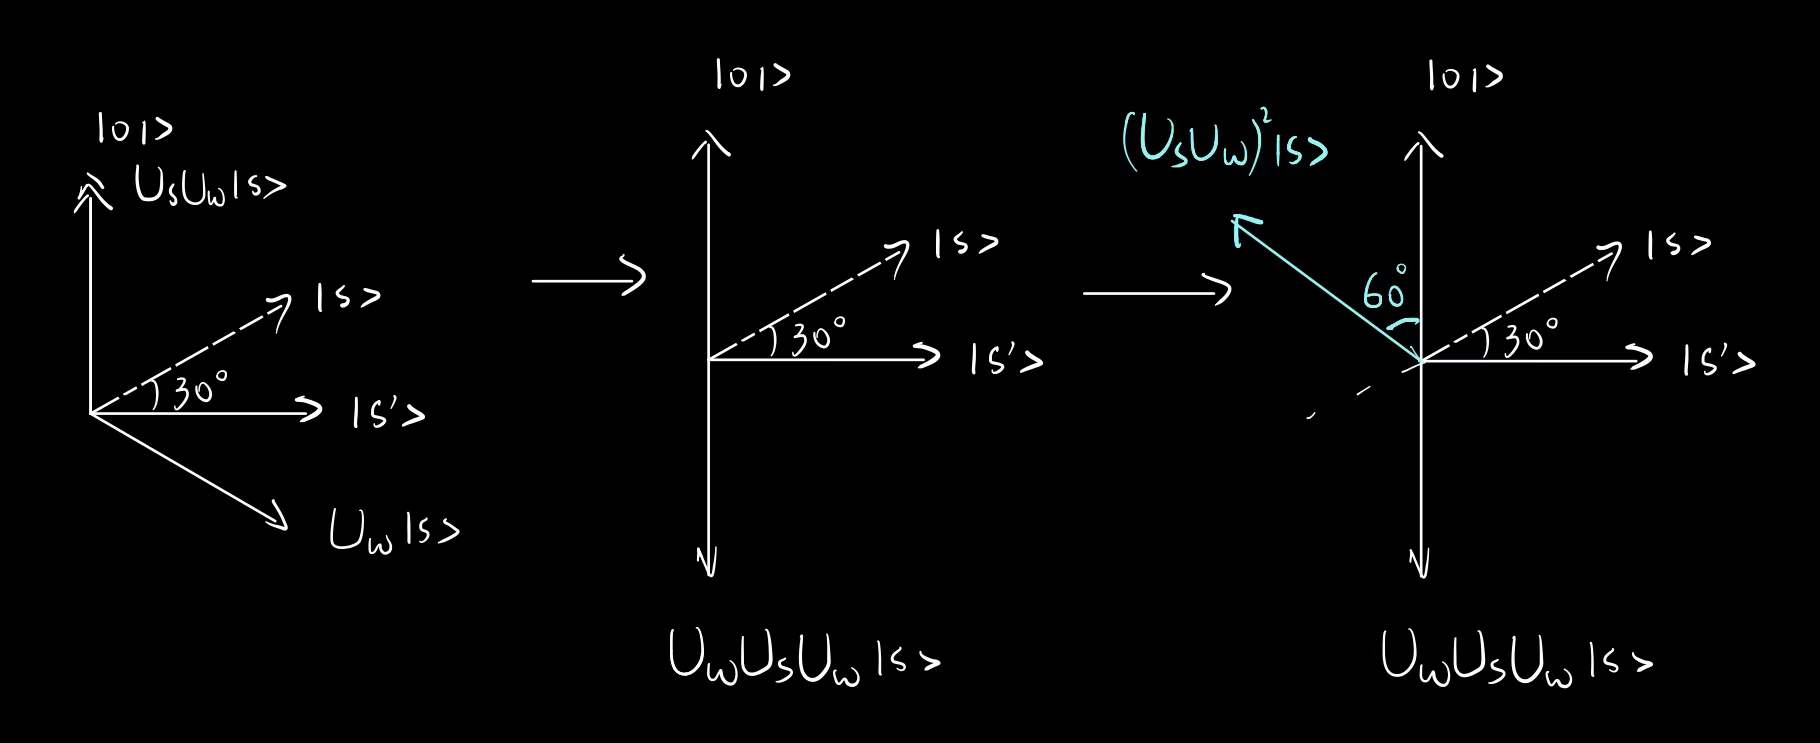 |01>
UₛU_w|s>
|s>
30°
|s'>
U_w|s>
|01>
|s>
30°
|s'>
U_wUₛU_w|s>
|01>
(UₛU_w)²|s>
60°
|s>
30°
|s'>
U_wUₛU_w|s>